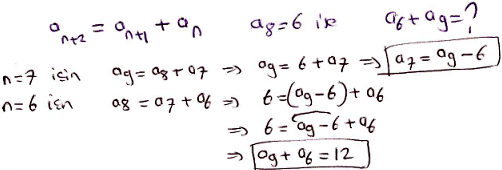 aₙ₊₂ = aₙ₊₁ + aₙ a₈=6 ise a₆+a₉=?
n=7 için a₉=a₈+a₇ ⇒ a₉=6+a₇ ⇒ a₇=a₉-6
n=6 için a₈=a₇+a₆ ⇒ 6=(a₉-6)+a₆
⇒ 6=a₉-6+a₆
⇒ a₉+a₆=12